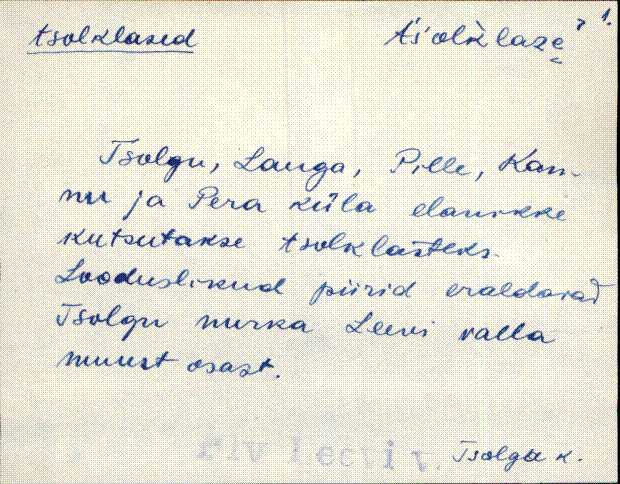 tsolklased t́śolk̀laze̬ˀ 1.
Tsolgu, Lauga, Pille, Kan-
nu ja Pera küla elanikke
kutsutakse tsolklasteks.
Looduslikud piirid eraldavad
Tsolgu nurka Leevi valla
muust osast.
Tsolgu k.